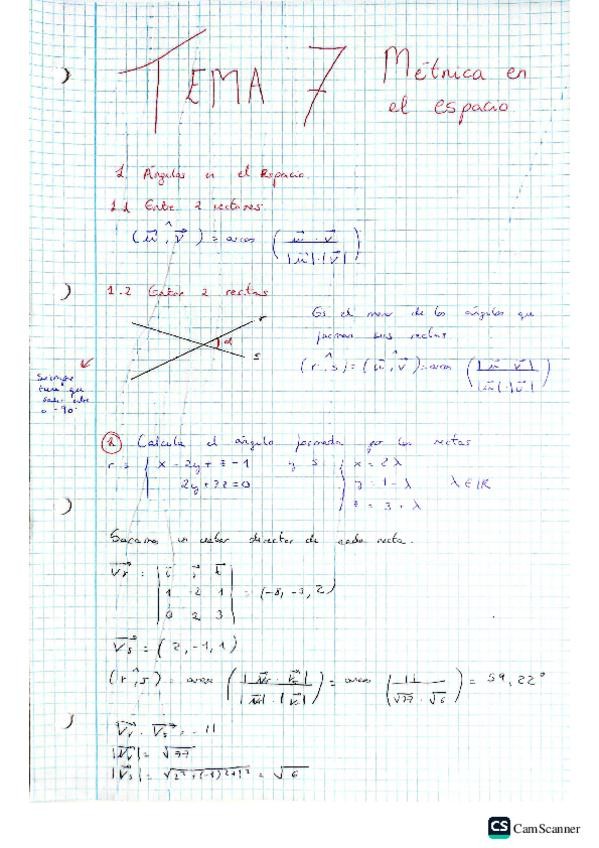 TEMA 7 Métrica en
el espacio
1. Ángulos en el Espacio.
1.1 Entre 2 vectores
(u⃗ ^ v⃗) = arcos ( u⃗ · v⃗ / |u⃗| · |v⃗| )
1.2 Entre 2 rectas
r
α
s
Es el menor de los ángulos que
forman sus rectas
(r ^ s) = (u⃗ ^ v⃗) = arcos ( |u⃗ · v⃗| / |u⃗| · |v⃗| )
Siempre
tiene que
0 - 90
① Calcula el ángulo formado por las rectas
r ≡ { x - 2y + z = 1 y s { x = 2λ
2y + 3z = 0 y = 1 - λ λ ∈ ℝ
z = 3 + λ
Sacamos un vector director de cada recta.
Vr = | i j k |
| 1 -2 1 | = (-8, -3, 2)
| 0 2 3 |
Vs = (2, -1, 1)
(r ^ s) = arcos ( |Vr · Vs| / |Vr| · |Vs| ) = arcos ( 11 / √77 · √6 ) = 59,22°
Vr · Vs = -11
|Vr| = √77
|Vs| = √2²+(-1)²+1² = √6
CS CamScanner